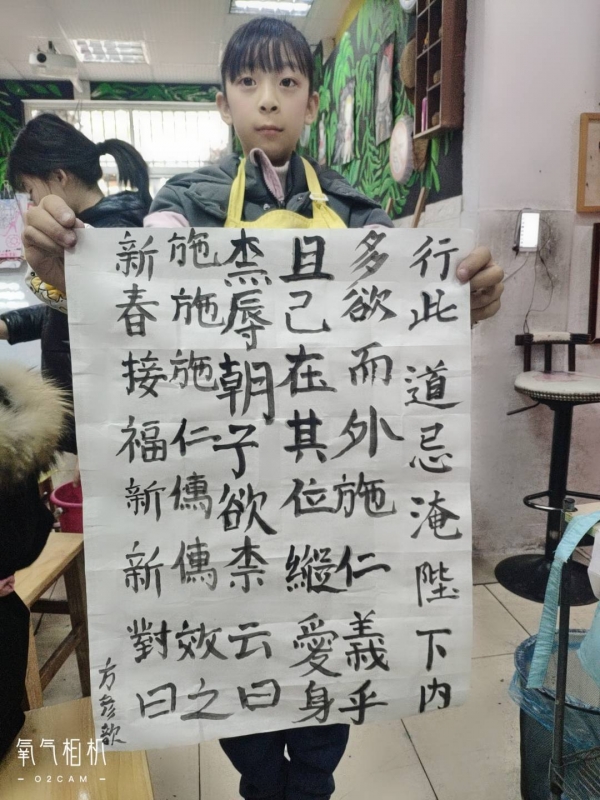 行此道忌淹陛下内
多欲而外施仁義乎
且己在其位縱愛身
杰辱朝子欲柰云曰
施施施仁傳傳效之
新春接福新新對曰
方
氧气相机
– O2CAM –